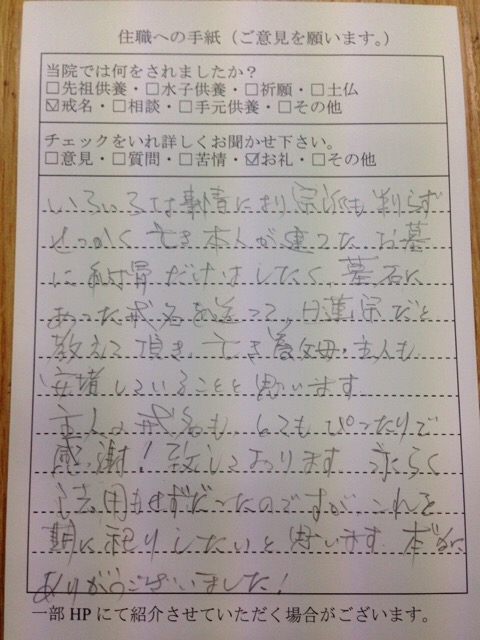 住職への手紙（ご意見を願います。）
当院では何をされましたか？
□先祖供養・□水子供養・□祈願・□土仏
☑戒名・□相談・□手元供養・□その他
チェックをいれ詳しくお聞かせ下さい。
□意見・□質問・□苦情・☑お礼・□その他
いろいろな事情により宗派も判らず
せっかく亡き本人が建てたお墓
に納骨だけはしたく、墓石に
あった戒名を送って、日蓮宗だと
教えて頂き、亡き義父母・主人も
安堵していることと思います
主人の戒名も、とてもぴったりで
感謝！致しております。永らく
法用もせずだったのですが、これを
期に祀りしたいと思います。本当に
ありがうございました！
一部HPにて紹介させていただく場合がございます。